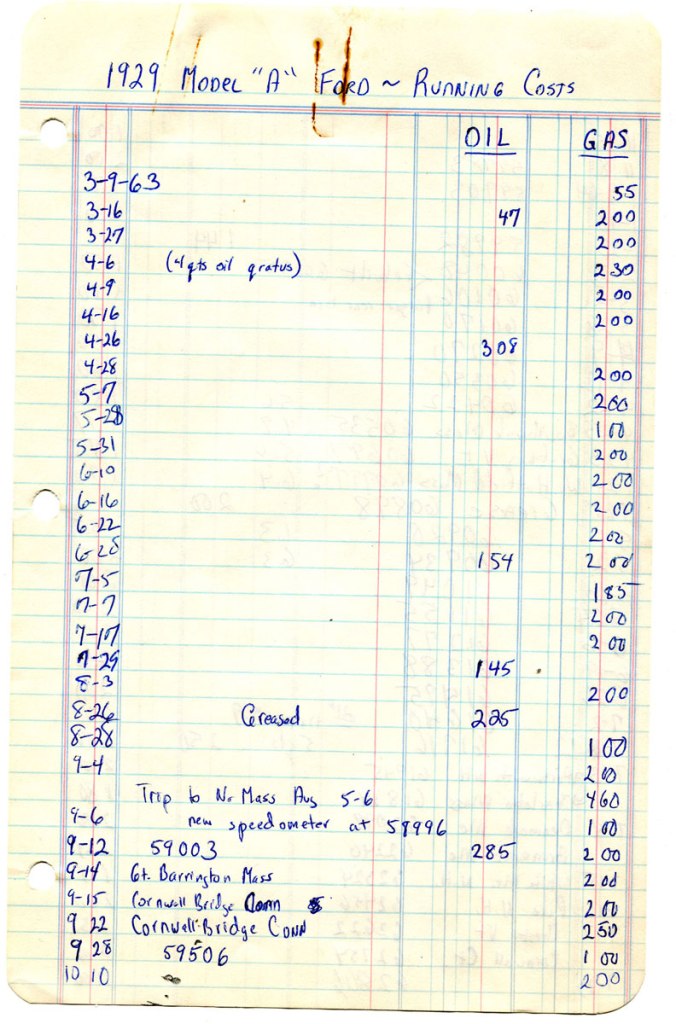 1929 MODEL "A" FORD ~ RUNNING COSTS
OIL GAS
3-9-63 55
3-16 47 2 00
3-27 2 00
4-6 (4 qts oil gratus) 2 30
4-9 2 00
4-16 2 00
4-26 3 08
4-28 2 00
5-7 2 00
5-28 1 00
5-31 2 00
6-10 2 00
6-16 2 00
6-22 2 00
6-28 1 54 2 00
7-5 1 85
7-7 2 00
7-17 2 00
7-29 1 45
8-3 2 00
8-26 Greased 2 25
8-28 1 00
9-4 2 00
Trip to No Mass Aug 5-6 4 60
9-6 new speedometer at 58996 1 00
9-12 59003 2 85 2 00
9-14 Gt. Barrington Mass 2 00
9-15 Cornwall Bridge Conn 2 00
9 22 Cornwall-Bridge CONN 2 50
9 28 59506 1 00
10 10 2 00